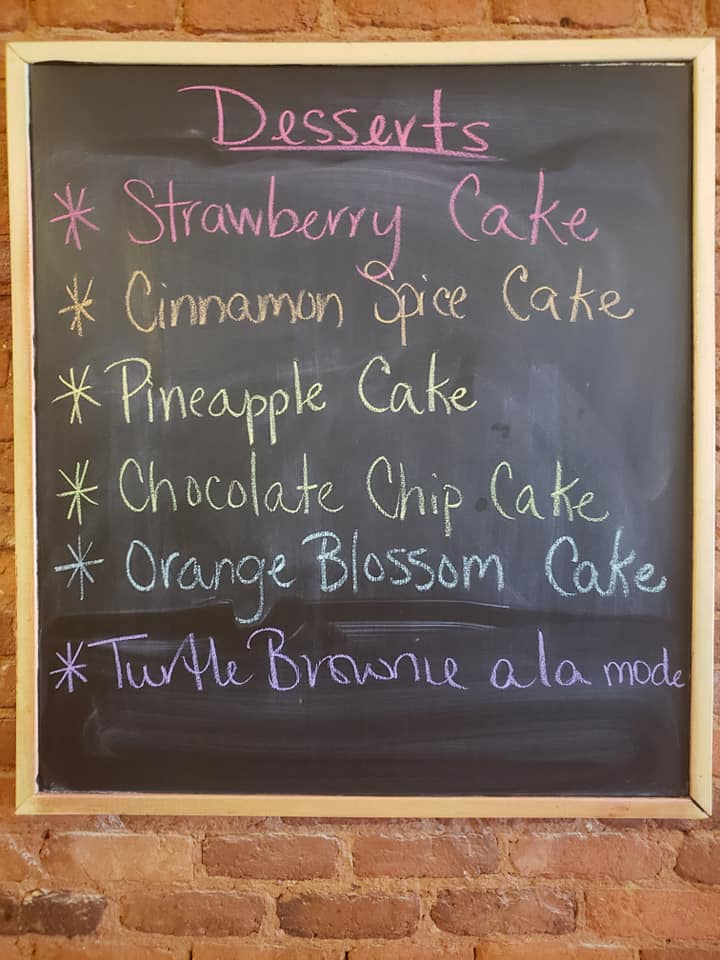 Desserts
* Strawberry Cake
* Cinnamon Spice Cake
* Pineapple Cake
* Chocolate Chip Cake
* Orange Blossom Cake
* Turtle Brownie a la mode